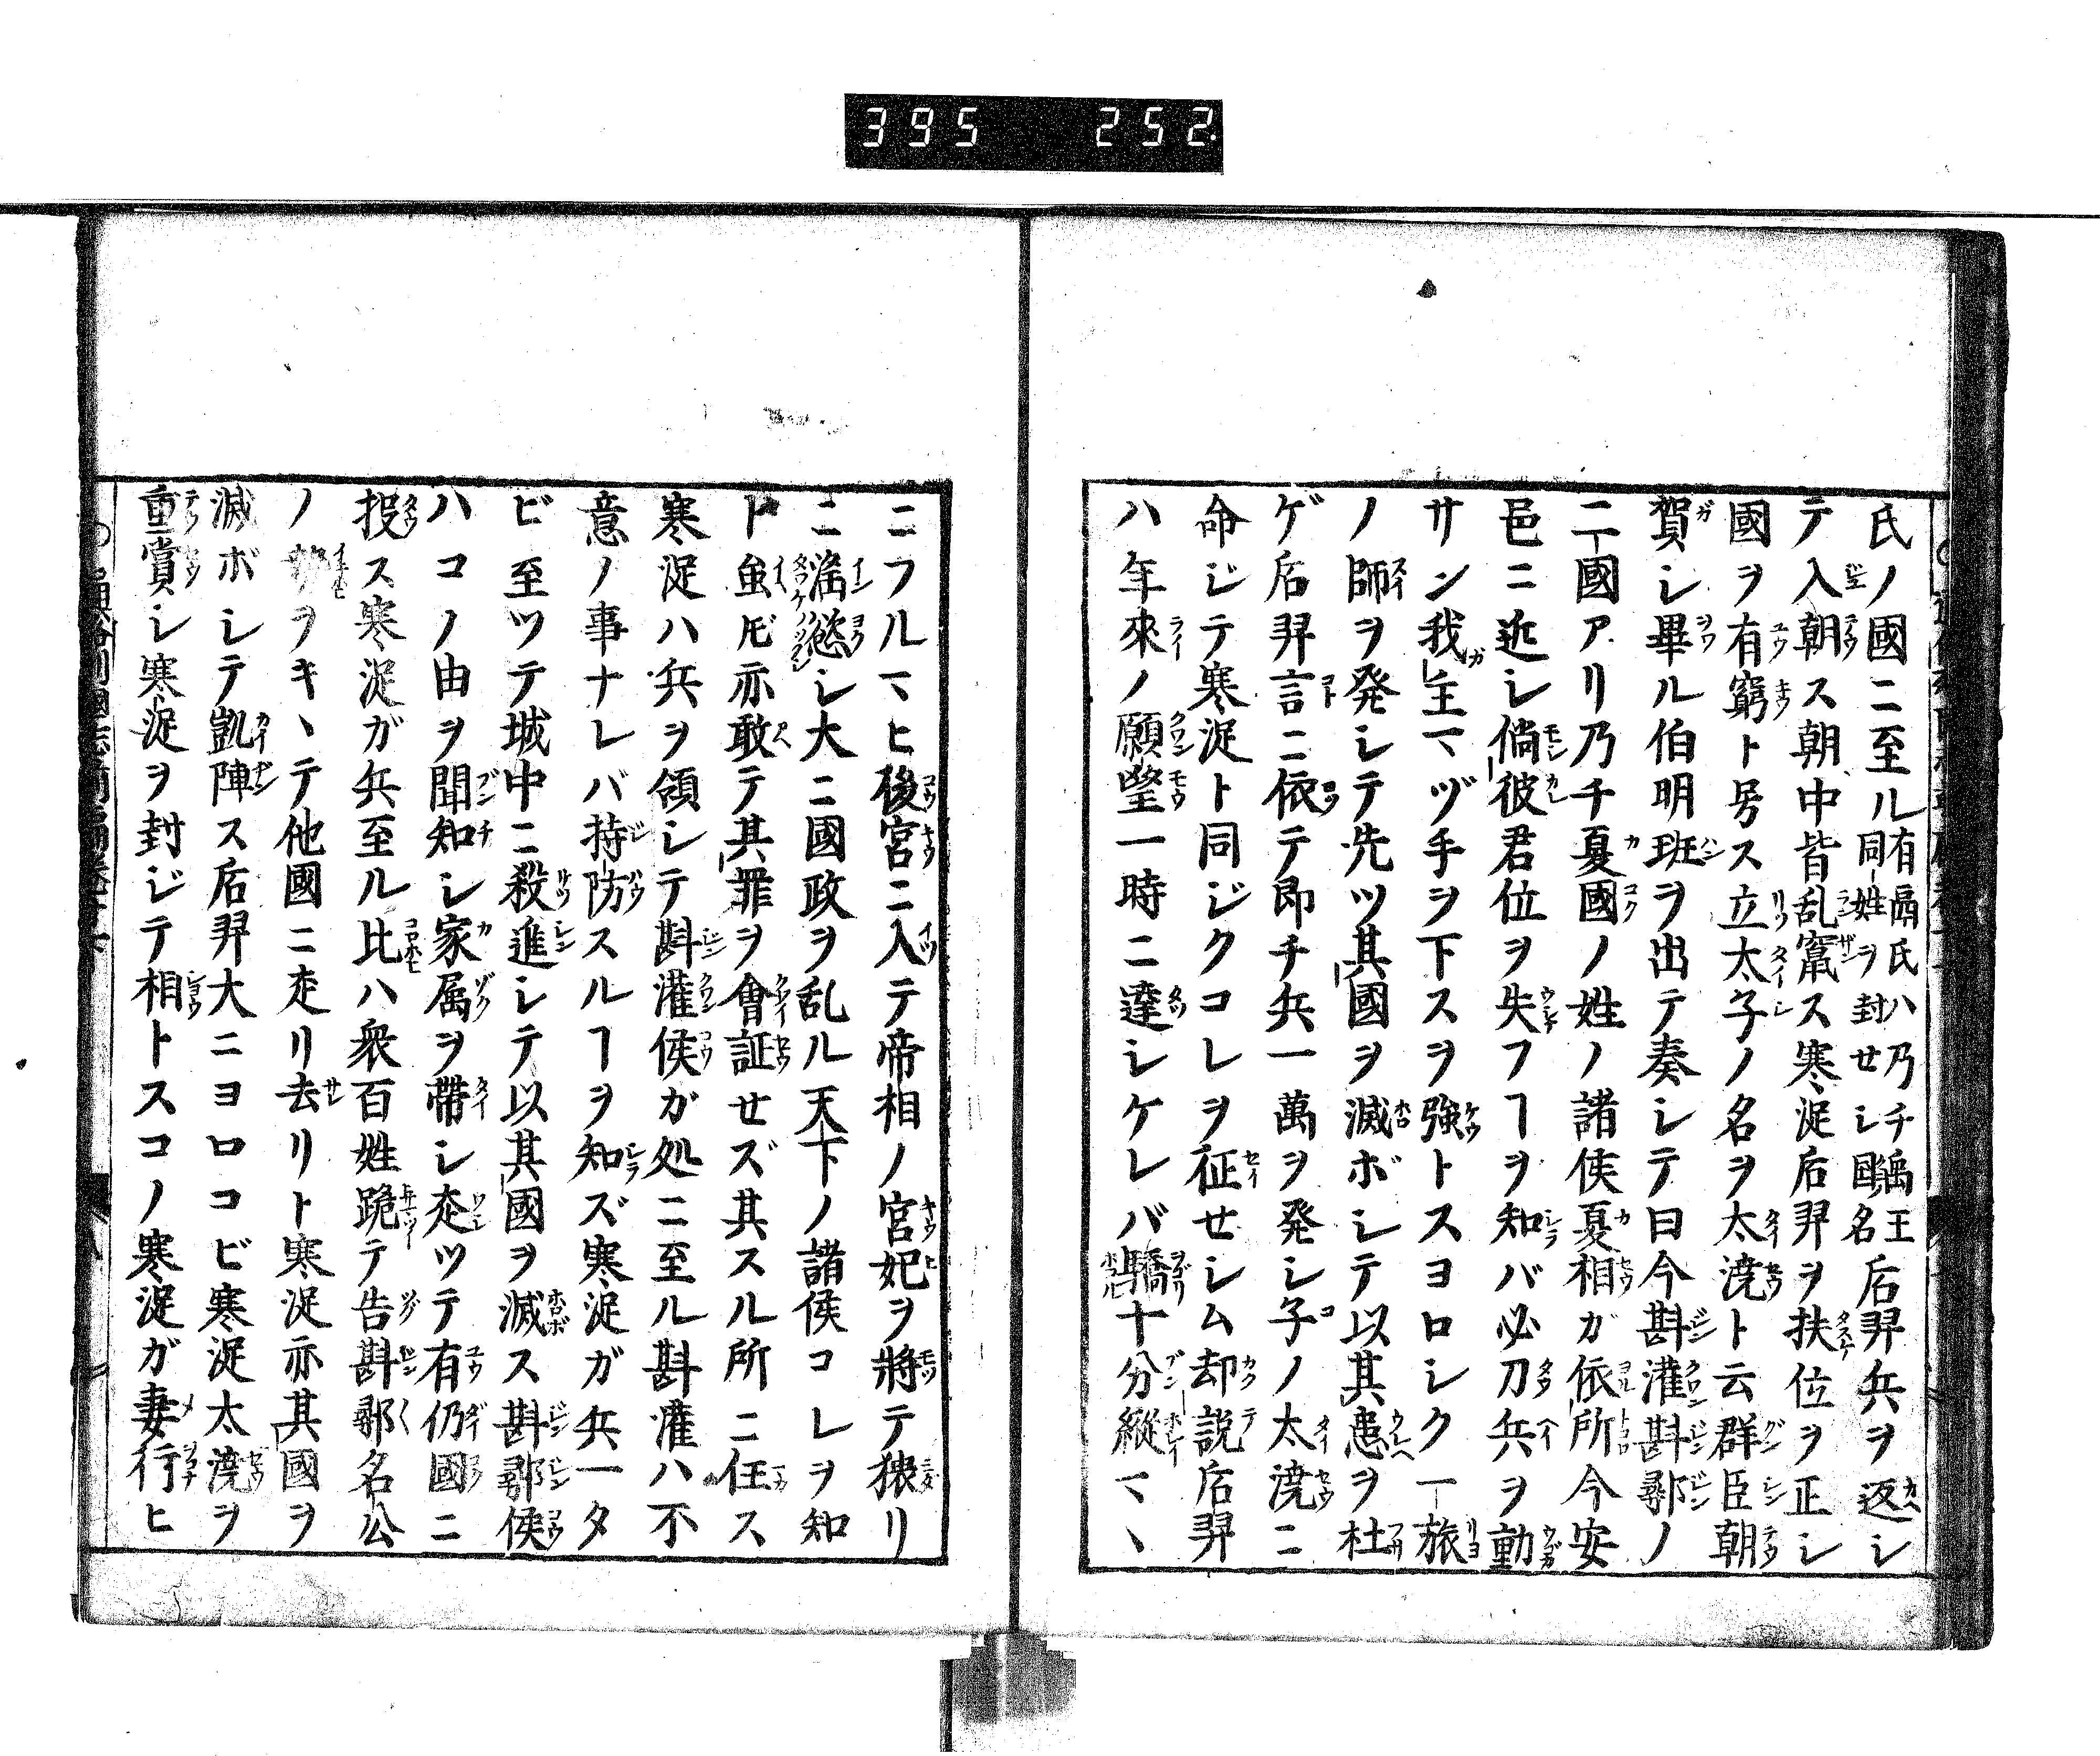 395 252.
氏ノ國ニ至ル有鬲氏ハ乃チ禹王同姓ヲ封せシ國名后羿兵ヲ返シ
テ入朝ス朝中皆乱竄ス寒浞后羿ヲ扶位ヲ正シ
國ヲ有窮ト号ス立太子ノ名ヲ太澆ト云群臣朝
賀シ畢ル伯明班ヲ出テ奏シテ曰今斟灌斟鄩ノ
二國アリ乃チ夏國ノ姓ノ諸侯夏相ガ依所今安
邑ニ近シ倘彼君位ヲ失フヿヲ知バ必刀兵ヲ動
サン我主マヅ手ヲ下スヲ強トスヨロシク一旅
ノ師ヲ発シテ先ツ其國ヲ滅ボシテ以其患ヲ杜
ゲ后羿言ニ依テ即チ兵一萬ヲ発シ子ノ太澆ニ
命ジテ寒浞ト同ジクコレヲ征せシム却説后羿
ハ年來ノ願望一時ニ達シケレバ驕十分縦マヽ
ニフルマヒ後宮ニ入テ帝相ノ宮妃ヲ將テ猥リ
ニ滛慾シ大ニ國政ヲ乱ル天下ノ諸侯コレヲ知
ト虽𪜈亦敢テ其罪ヲ會証せズ其スル所ニ任ス
寒浞ハ兵ヲ領シテ斟灌侯ガ処ニ至ル斟灌ハ不
意ノ事ナレバ持防スルヿヲ知ズ寒浞ガ兵一タ
ビ至ツテ城中ニ殺進シテ以其國ヲ滅ス斟鄩侯
ハコノ由ヲ聞知シ家属ヲ帶シ走ツテ有仍國ニ
投ス寒浞ガ兵至ル比ハ衆百姓跪テ告斟鄩名公
ノ勢ヲキヽテ他國ニ走リ去リト寒浞亦其國ヲ
滅ボシテ凱陣ス后羿大ニヨロコビ寒浞太澆ヲ
重賞シ寒浞ヲ封ジテ相トスコノ寒浞ガ妻行ヒ